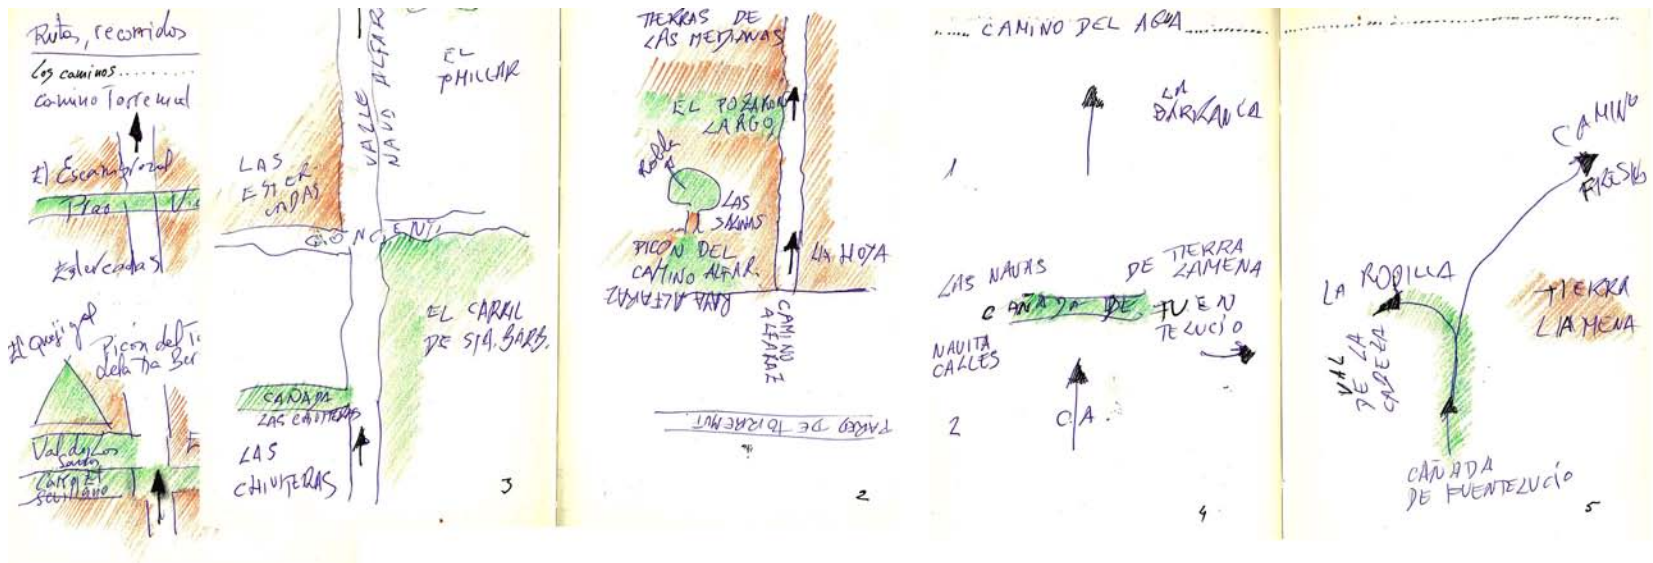 Rutas, recorridos
Los caminos..........
Camino Torremut
El Escambronal
Prao
Estercadas
El Quejigal
Picón del T
de la Tia Ber
Val de los
Santos
Carro El
Sevillano
VALLE ALFAR
NAVA ALFAR
EL
TOMILLAR
LAS
ESTER-
CADAS
CONCIENTI.
EL CARRIL
DE STA. BARB.
CAÑADA
LAS CHIVITERAS
LAS
CHIVITERAS
3
TIERRAS DE
LAS MEDIANAS
EL POZARON
LARGO
Roble
LAS
SALINAS
PICON DEL
CAMINO ALFAR.
LA HOYA
RAYA ALFARAZ
CAMINO
ALFARAZ
PARED DE TORREMUT
2
CAMINO DEL AGUA
LA
BARRANCA
1
LAS NAVAS
DE TIERRA
LAMENA
CAÑADA DE FUEN
TELUCIO
NAVITA
CALLES
2
C.A.
4
CAMINO
FRESNO
LA RODILLA
TIERRA
LLAMENA
VAL
DE LA
CABEZA
CAÑADA
DE FUENTELUCÍO
5